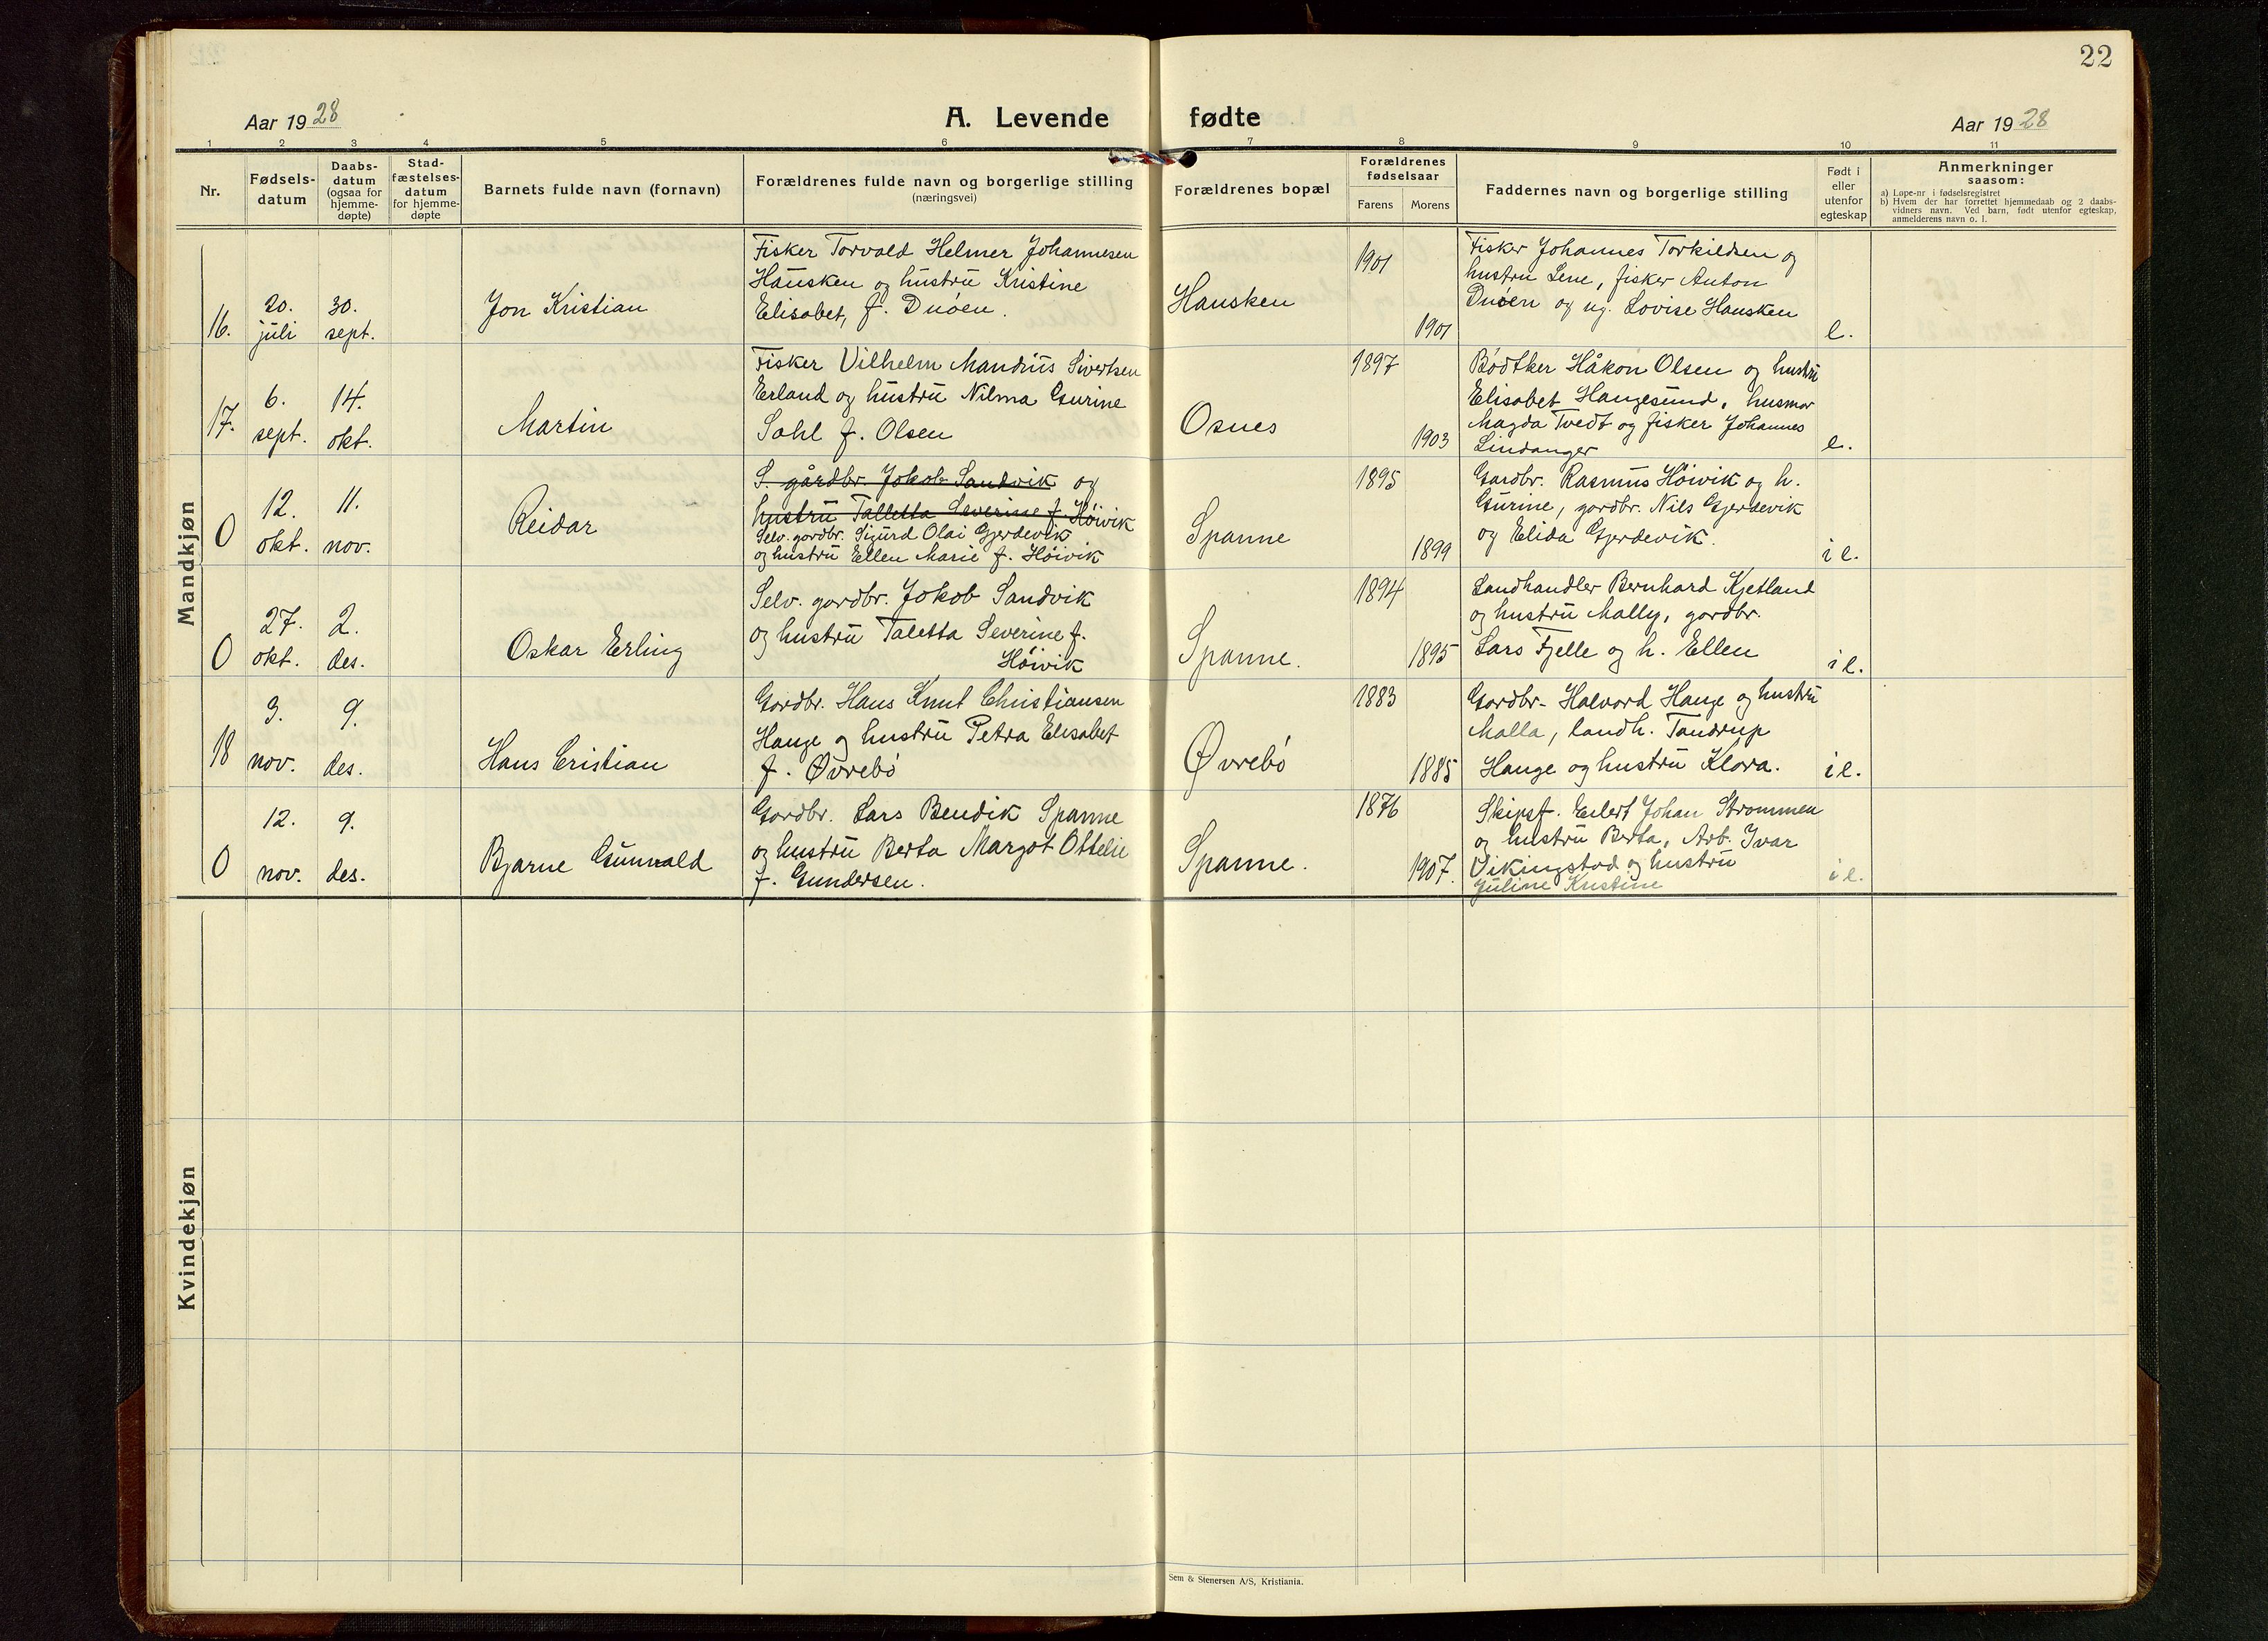 22
Aar 1928
A. Levende fødte
Aar 1928
1 2 3 4 5 6 7 8 9 10 11
Nr.
Fødsels-
datum
Daabs-
datum
(ogsaa for
hjemme-
døpte)
Stad-
fæstelses-
datum
for hjemme-
døpte
Barnets fulde navn (fornavn)
Forældrenes fulde navn og borgerlige stilling
(næringsvei)
Forældrenes bopæl
Forældrenes
fødselsaar
Farens Morens
Faddernes navn og borgerlige stilling
Født i
eller
utenfor
egteskap
Anmerkninger
saasom:
a) Løpe-nr i fødselsregistret
b) Hvem der har forrettet hjemmedaab og 2 daabs-
vidners navn. Ved barn, født utenfor egteskap,
anmelderens navn o. l.
Mandkjøn
16.
20.
juli
30.
sept.
Jon Kristian
Fisker Torvald Helmer Johannesen
Hausken og hustru Kristine
Elisabet, f. Duøen.
Hausken
1901
1901
Fisker Johannes Torkildsen og
hustru Lene, fisker Anton
Duøen og ug. Lovise Hausken
e.
17.
6.
sept.
14.
okt.
Martin
Fisker Vilhelm Mandius Sivertsen
Erland og hustru Nilma Gurine
Sahl f. Olsen
Osnes
1897
1903
Bødtker Håkon Olsen og hustru
Elisabet Haugesund, husmor
Magda Tvedt og fisker Johannes
Lindanger
e.
0
12.
okt.
11.
nov.
Reidar
S. gårdbr. Jakob Sandvik og
hustru Talletta Severine f. Høivik
Selv. gardbr. Sigurd Olai Gjerdevik
og hustru Ellen Marie f. Høivik
Spanne
1895
1899
Gardbr. Rasmus Høivik og h.
Gurine, gardbr. Nils Gjerdevik
og Elida Gjerdevik.
i e.
0
27.
okt.
2.
des.
Oskar Erling
Selv. gardbr. Jakob Sandvik
og hustru Taletta Severine f.
Høivik
Spanne.
1894
1895
Landhandler Bernhard Kjetland
og hustru Mally, gardbr.
Lars Fjelle og h. Ellen
i e.
18
3.
nov.
9.
des.
Hans Cristian
Gardbr. Hans Knut Christiansen
Hauge og hustru Petra Elisabet
f. Øvrebø
Øvrebø
1883
1885
Gardbr. Halvard Hauge og hustru
Malla, landh. Tandrup
Hauge og hustru Klara.
i e.
0
12.
nov.
9.
des.
Bjarne Gunvald
Gardbr. Lars Bendik Spanne
og hustru Berta Margot Ottelie
f. Gundersen.
Spanne.
1876
1907.
Skipsf. Eilert Johan Strømmen
og hustru Berta, Arb. Ivar
Vikingstad og hustru
Juline Kristine
i e.
Kvindekjøn
Sem & Stenersen A/S, Kristiania.